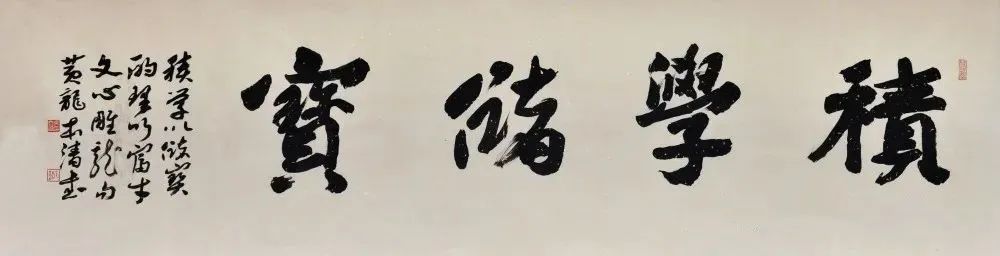 積學儲寶
積学以儲寶
酌理以富才
文心雕龍句
黃龍清書